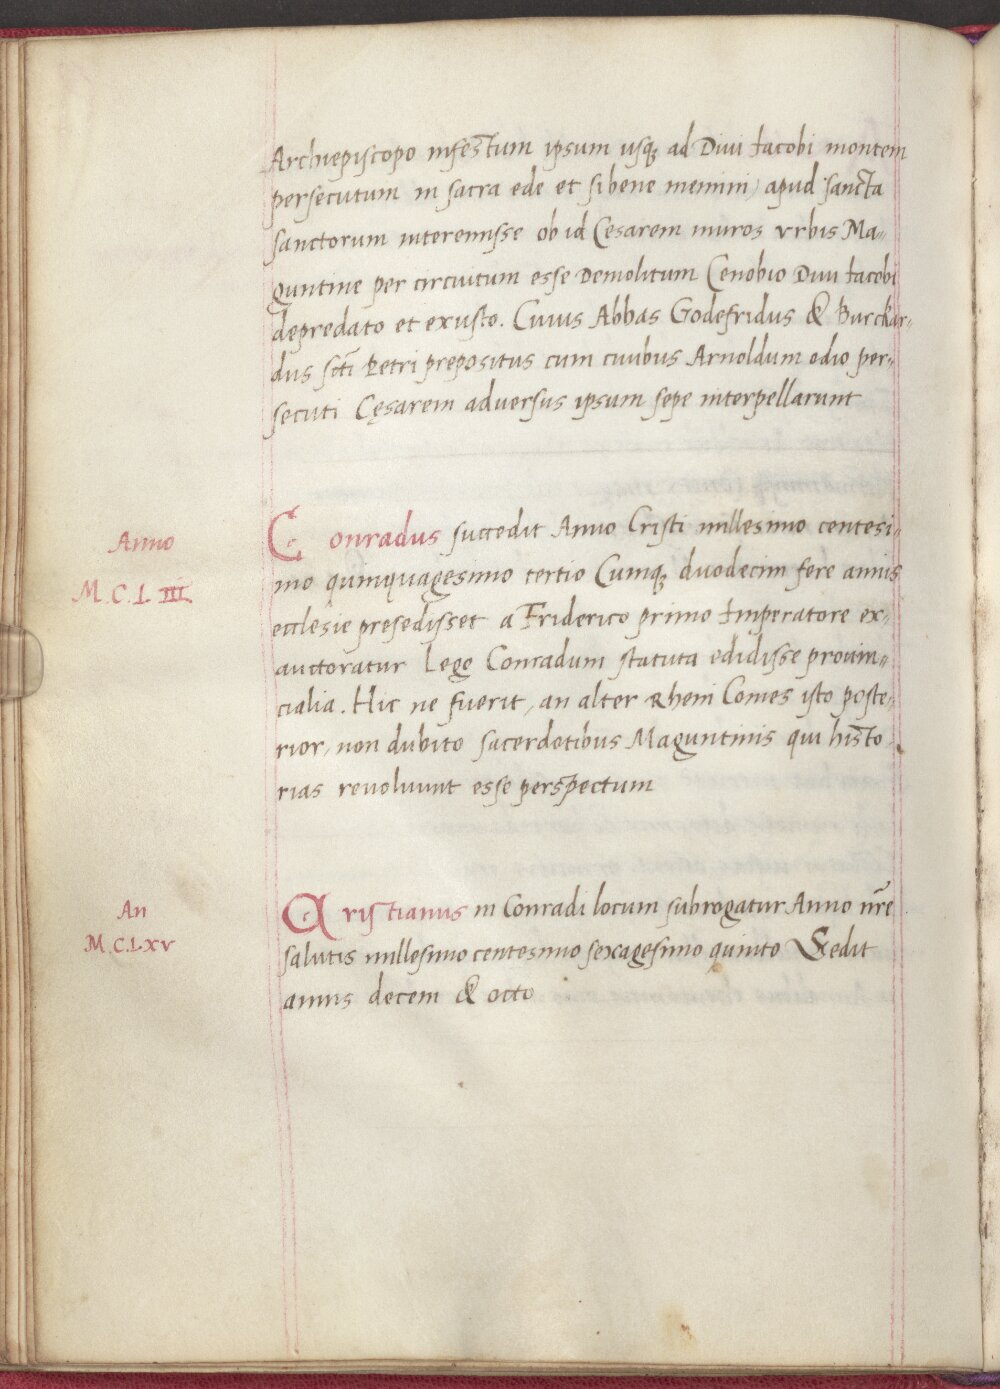 Archiepiscopo infestum ipsum usq̨ ad Diui Iacobi montem
persecutum in sacra ede et si bene memini) apud sancta
sanctorum interemisse ob id Cesarem muros vrbis Ma-
guntine per circuitum esse Demolitum Cenobio Diui Iacobi
depredato et exusto. Cuius Abbas Godefridus & Burckar-
dus scti Petri prepositus cum ciuibus Arnoldum odio per-
secuti Cęsarem aduersus ipsum sepe interpellarunt
Anno
M.C.L III
Conradus succedit Anno Cristi millesimo centesi-
mo quinquagesimo tertio Cumq̨ duodecim fere annis
ecclesie presedisset a Friderico primo Imperatore ex-
auctoratur Lege Conradum statuta edidisse prouin-
cialia. Hic ne fuerit, an alter Rheni Comes isto poste-
rior, non dubito sacerdotibus Maguntinis qui histo-
rias reuoluunt esse perspectum
An
M.C.LXV
Cristianus in Conradi locum subrogatur Anno nr̄e
salutis millesimo centesimo sexagesimo quinto Sedit
annis decem & octo